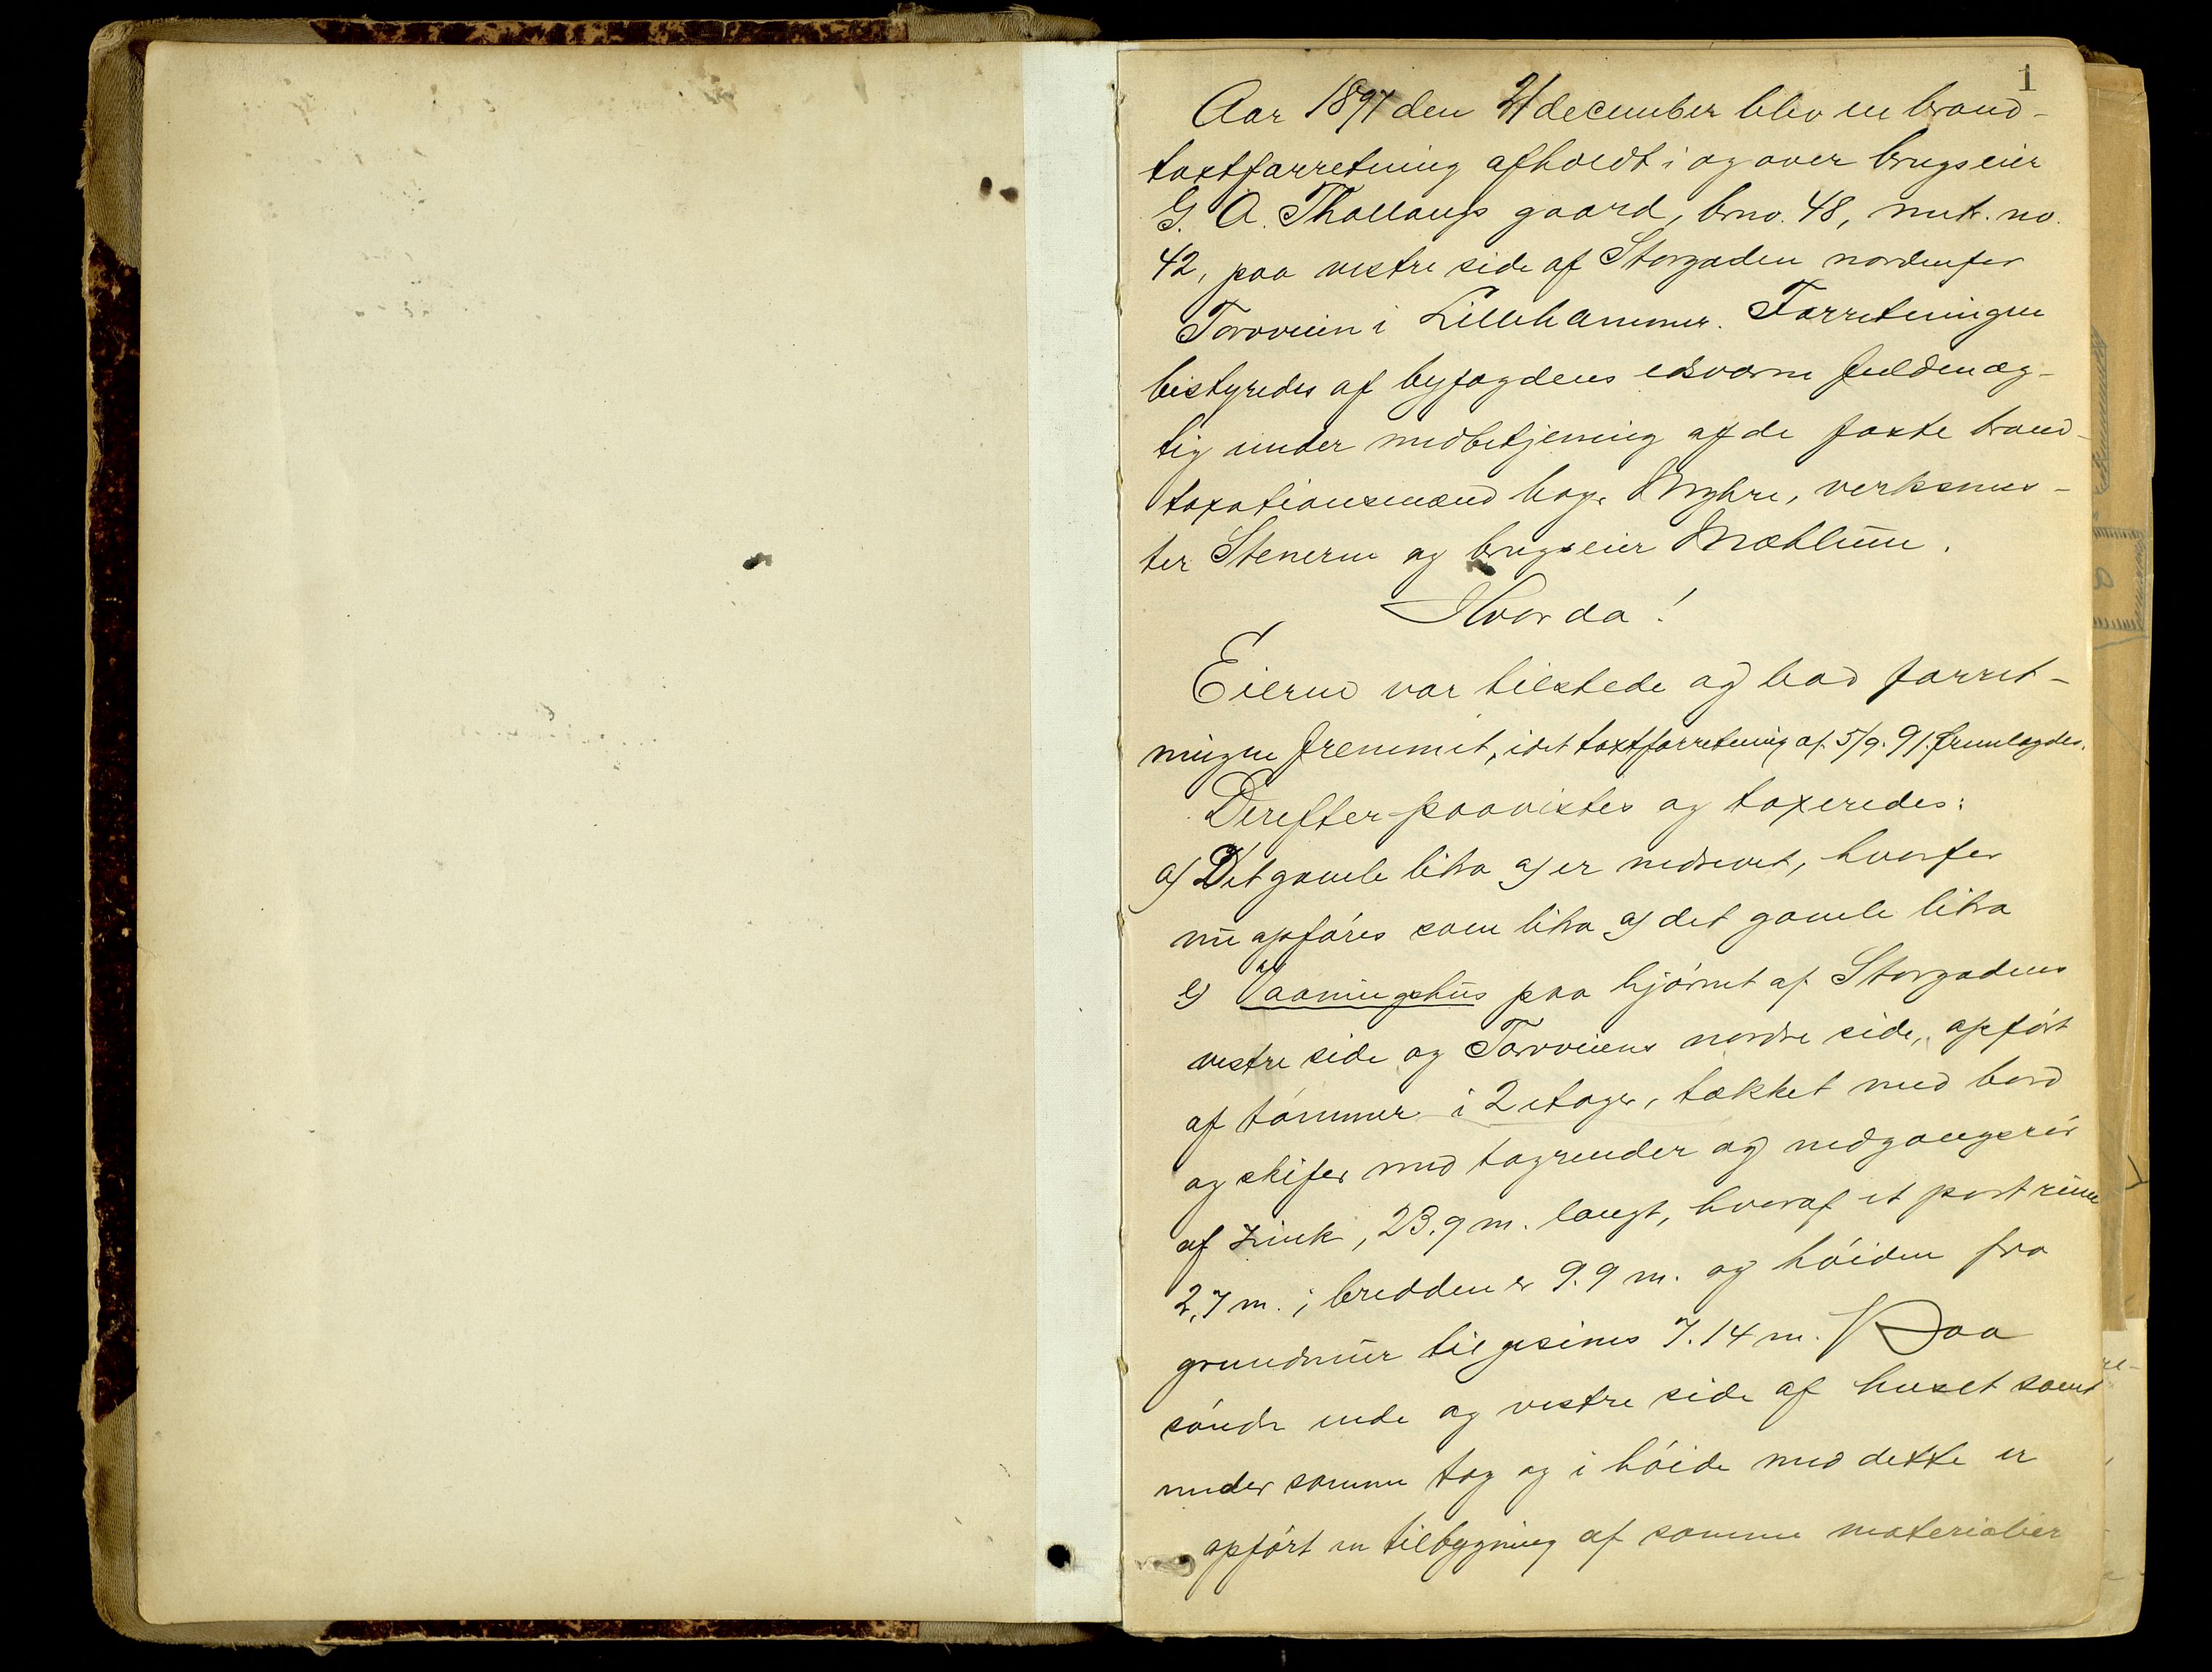 1
Aar 1897 den 21 december blev en brand-
taxtforretning afholdt i og over brugseier
G. A. Thallaugs gaard, brno. 48, mtr. no.
42, paa vestre side af Storgaden nordenfor
Torvveien i Lillehammer. Forretningen
bestyredes af byfogdens edsvorne fuldmæg-
tig under medbetjening af de faste brand-
taxationsmænd bager Myhre, verksmes-
ter Stenersen og brugseier Mæhlum.
Hvorda!
Eieren var tilstede og bad forret-
ningen fremmet, idet taxtforretning af 5/9. 91. fremlagdes.
Derefter paavistes og taxeredes:
a) Det gamle litra a) er nedrevet, hvorfor
nu opføres som litra a) det gamle litra
b) Vaaningshus paa hjørnet af Storgadens
vestre side og Torvveiens nordre side, opført
af tømmer i 2 etager, tækket med bord
og skifer med tagrender og nedgangsrør
af Zink, 23.9 m. langt, hvoraf et portrum
2,7 m.; bredden er 9.9 m. og høiden fra
grundmur til gesims 7.14 m. Paa
søndre ende og vestre side af huset samt
under samme tag og i høide med dette er
opført en tilbygning af samme materialier